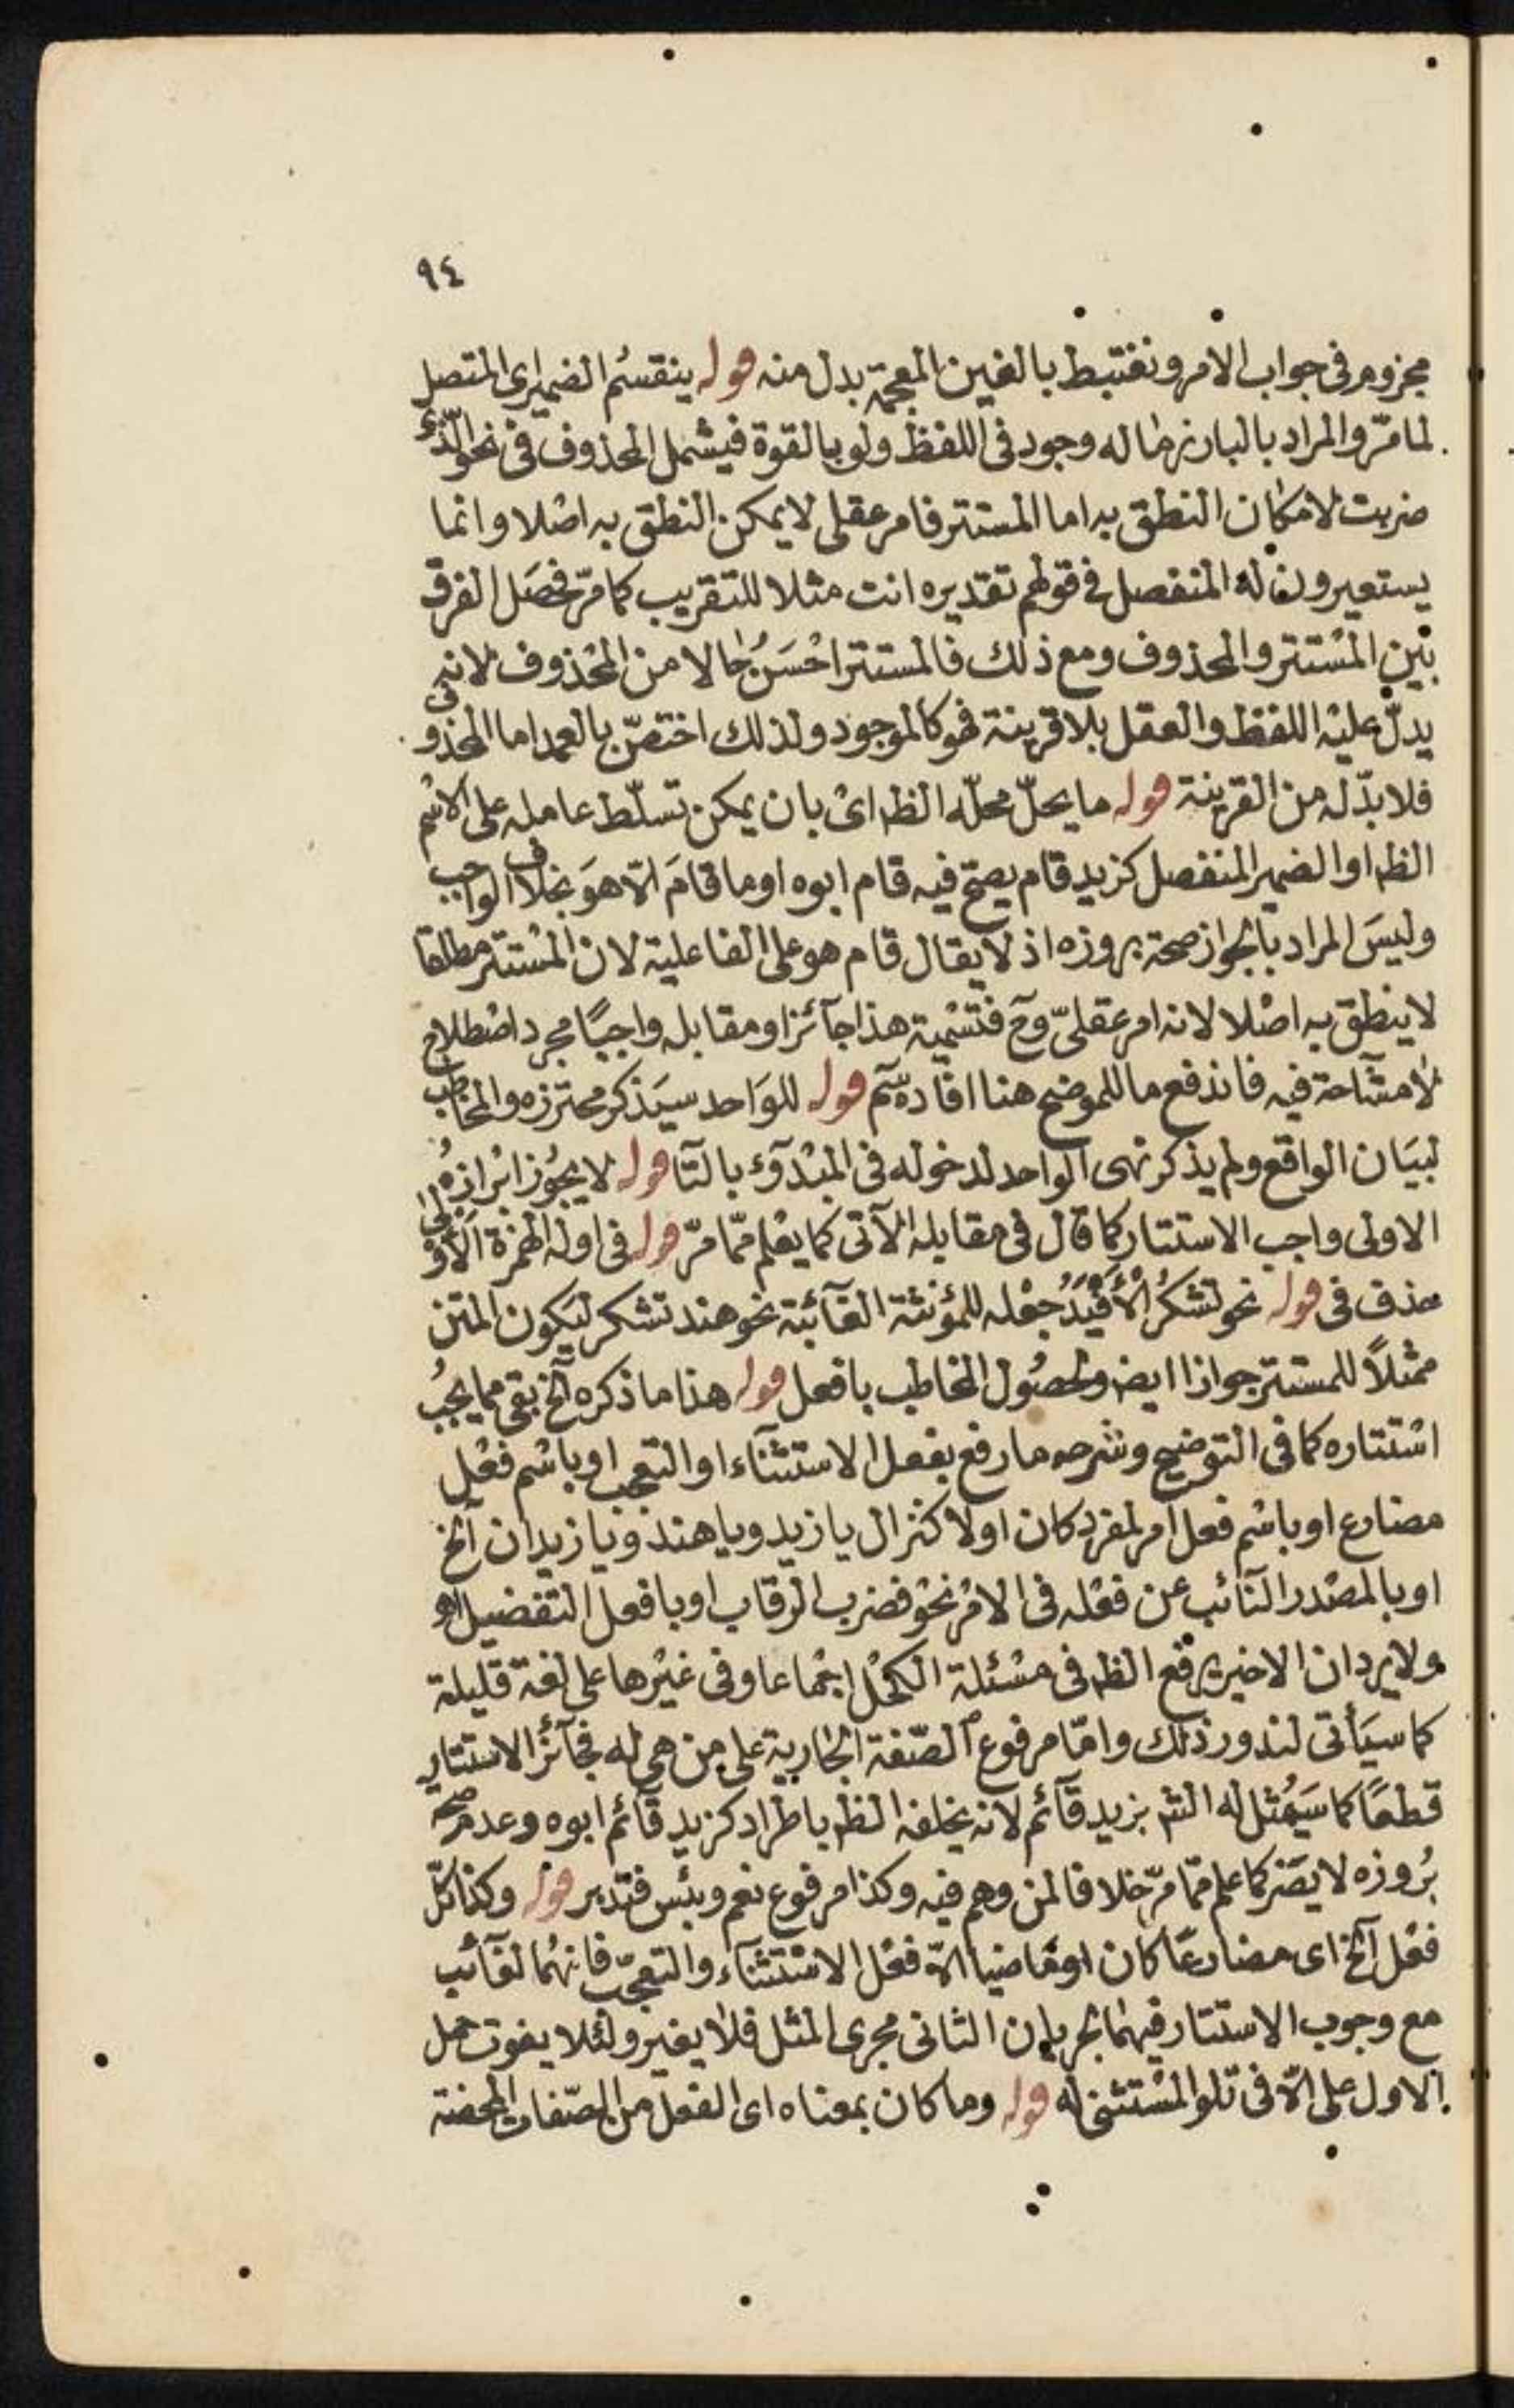 ٩٤
مجزوم فى جواب الامر ونغتبط بالغين المعجمة بدل منه قوله ينقسم الضمير اى المتصل
لما مرّ والمراد بالبارز ما له وجود فى اللفظ ولو بالقوة فيشمل المحذوف فى نحو الّذى
ضربت لامكان النطق به اما المستتر فامر عقلى لا يمكن النطق به اصلا وانما
يستعيرون له المنفصل فى قولهم تقديره انت مثلا للتقريب كما مرّ فحصل الفرق
بين المستتر والمحذوف ومع ذلك فالمستتر احسَنُ حالا من المحذوف لانه
يدلّ عليه اللفظ والعقل بلا قرينة فهو كالموجود ولذلك اختصّ بالعمد اما المحذو
فلا بدّ له من القرينة قوله ما يحلّ محلّه الظ اىْ بان يمكن تسلّط عامله على الاسْم
الظ او الضمير المنفصل كزيد قام يصحّ فيه قام ابوه او ما قامَ الّا هوَ بخلاف الواجب
وليسَ المراد بالجواز صحة بروزه اذ لا يقال قام هو على الفاعلية لان المسْتتر مطلقا
لا ينطق به اصْلا لانه امر عقلىّ وح فتسْمية هذا جآئزا ومقابله واجبًا مجرد اصْطلاح
لا مشآحة فيه فاندفع ما للموضح هنا افاده سم قوله للوَاحد سيَذكر محترزه والمخاطب
لبيَان الواقع ولم يذكر نهى الواحد لدخوله فى المبْدوّء بالتّا قوله لا يجُوز ابْرازهُ
الاولى واجب الاستتار كما قال فى مقابله الآتى كما يعْلم ممّا مرّ قوله فى اوله الهمزة الأوْلى
حذف فى قوله نحو تشكرُ الأفْيَدُ جعْله للمؤنثة الغآئبة نحو هند تشكر ليَكون المتن
ممثلاً للمستتر جوازا ايض ولحصُول المخاطب بافعل قوله هذا ما ذكره آلخ بقى مما يجبُ
اسْتتاره كما فى التوضيح وشرحه ما رفع بفعل الاستثنآء او التعجب او باسْم فعْل
مضارع او باسْم فعل امر لمفرد كان او لاكثر ال يا زيد ويا هند ويا زيدان آلخ
او بالمصْدر النآئب عن فعْله فى الامْر نحْو فضرب الرقاب او بافعل التفضيل اهـ
ولا يرد ان الاخير يرفع الظ فى مسْئلة الكحْل اجْماعا وفى غيْرها على لغة قليلة
كما سيَأتى لندور ذلك وامّا مرفوع الصّفة الجارية على من هى له فجآئز الاستتار
قطعًا كما سَيمُثل له الشر بزيد قآئم لانه يخلفه الظ باطراد كزيد قآئم ابوه وعدم صحة
بُروزه لا يضّر كما علم ممّا مرّ خلافا لمن وهم فيه وكذا مرفوع نعم وبئس فتدبر قوله وكذا كلّ
فعْل آلخ اى مضارعًا كان او ماضيا الّا فعْل الاسْتثنآء والتعجّب فانهُما لغآئب
مع وجوب الاستتار فيهما لجريان الثانى مجرى المثل فلا يغير ولئلا يفوت حمل
الاول على الّا فى تلو المسْتثنى له قوله وما كان بمعناه اى الفعل من الصّفات المحضة